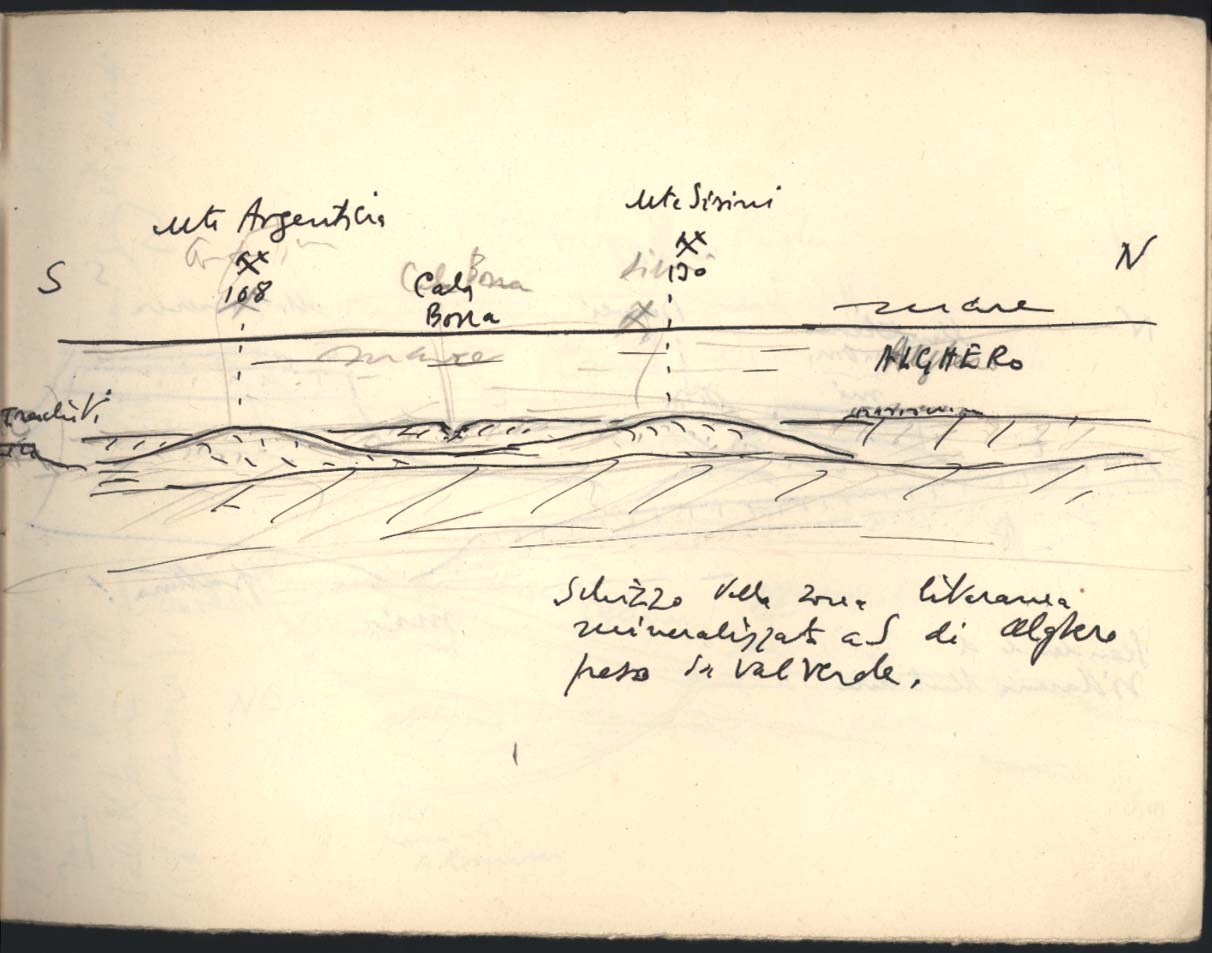 Mte Argenticia
Mte Sisini
S
168
Cala
Bona
130
N
mare
mare
ALGHERO
Schizzo della zona literanea
mineralizzata a S di Alghero
presso la Valverde.